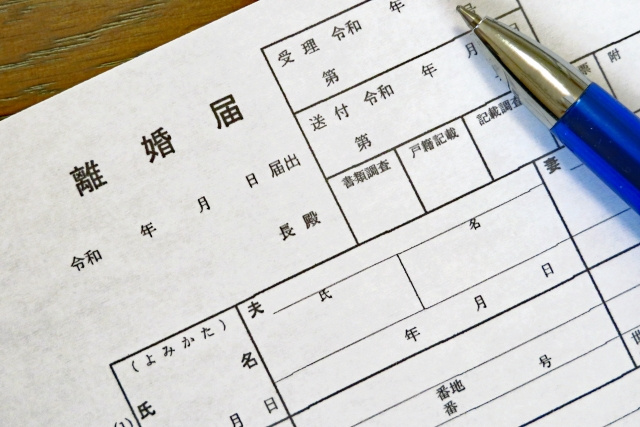 離婚届
令和 年 月 日 届出
長殿
受理 令和 年
第
送付 令和 年 月
第
書類調査 戸籍記載 記載調査 票 附
(よみかた)
夫 氏 名
妻
氏 名
年 月 日
月 日
番地
番
号
(1)